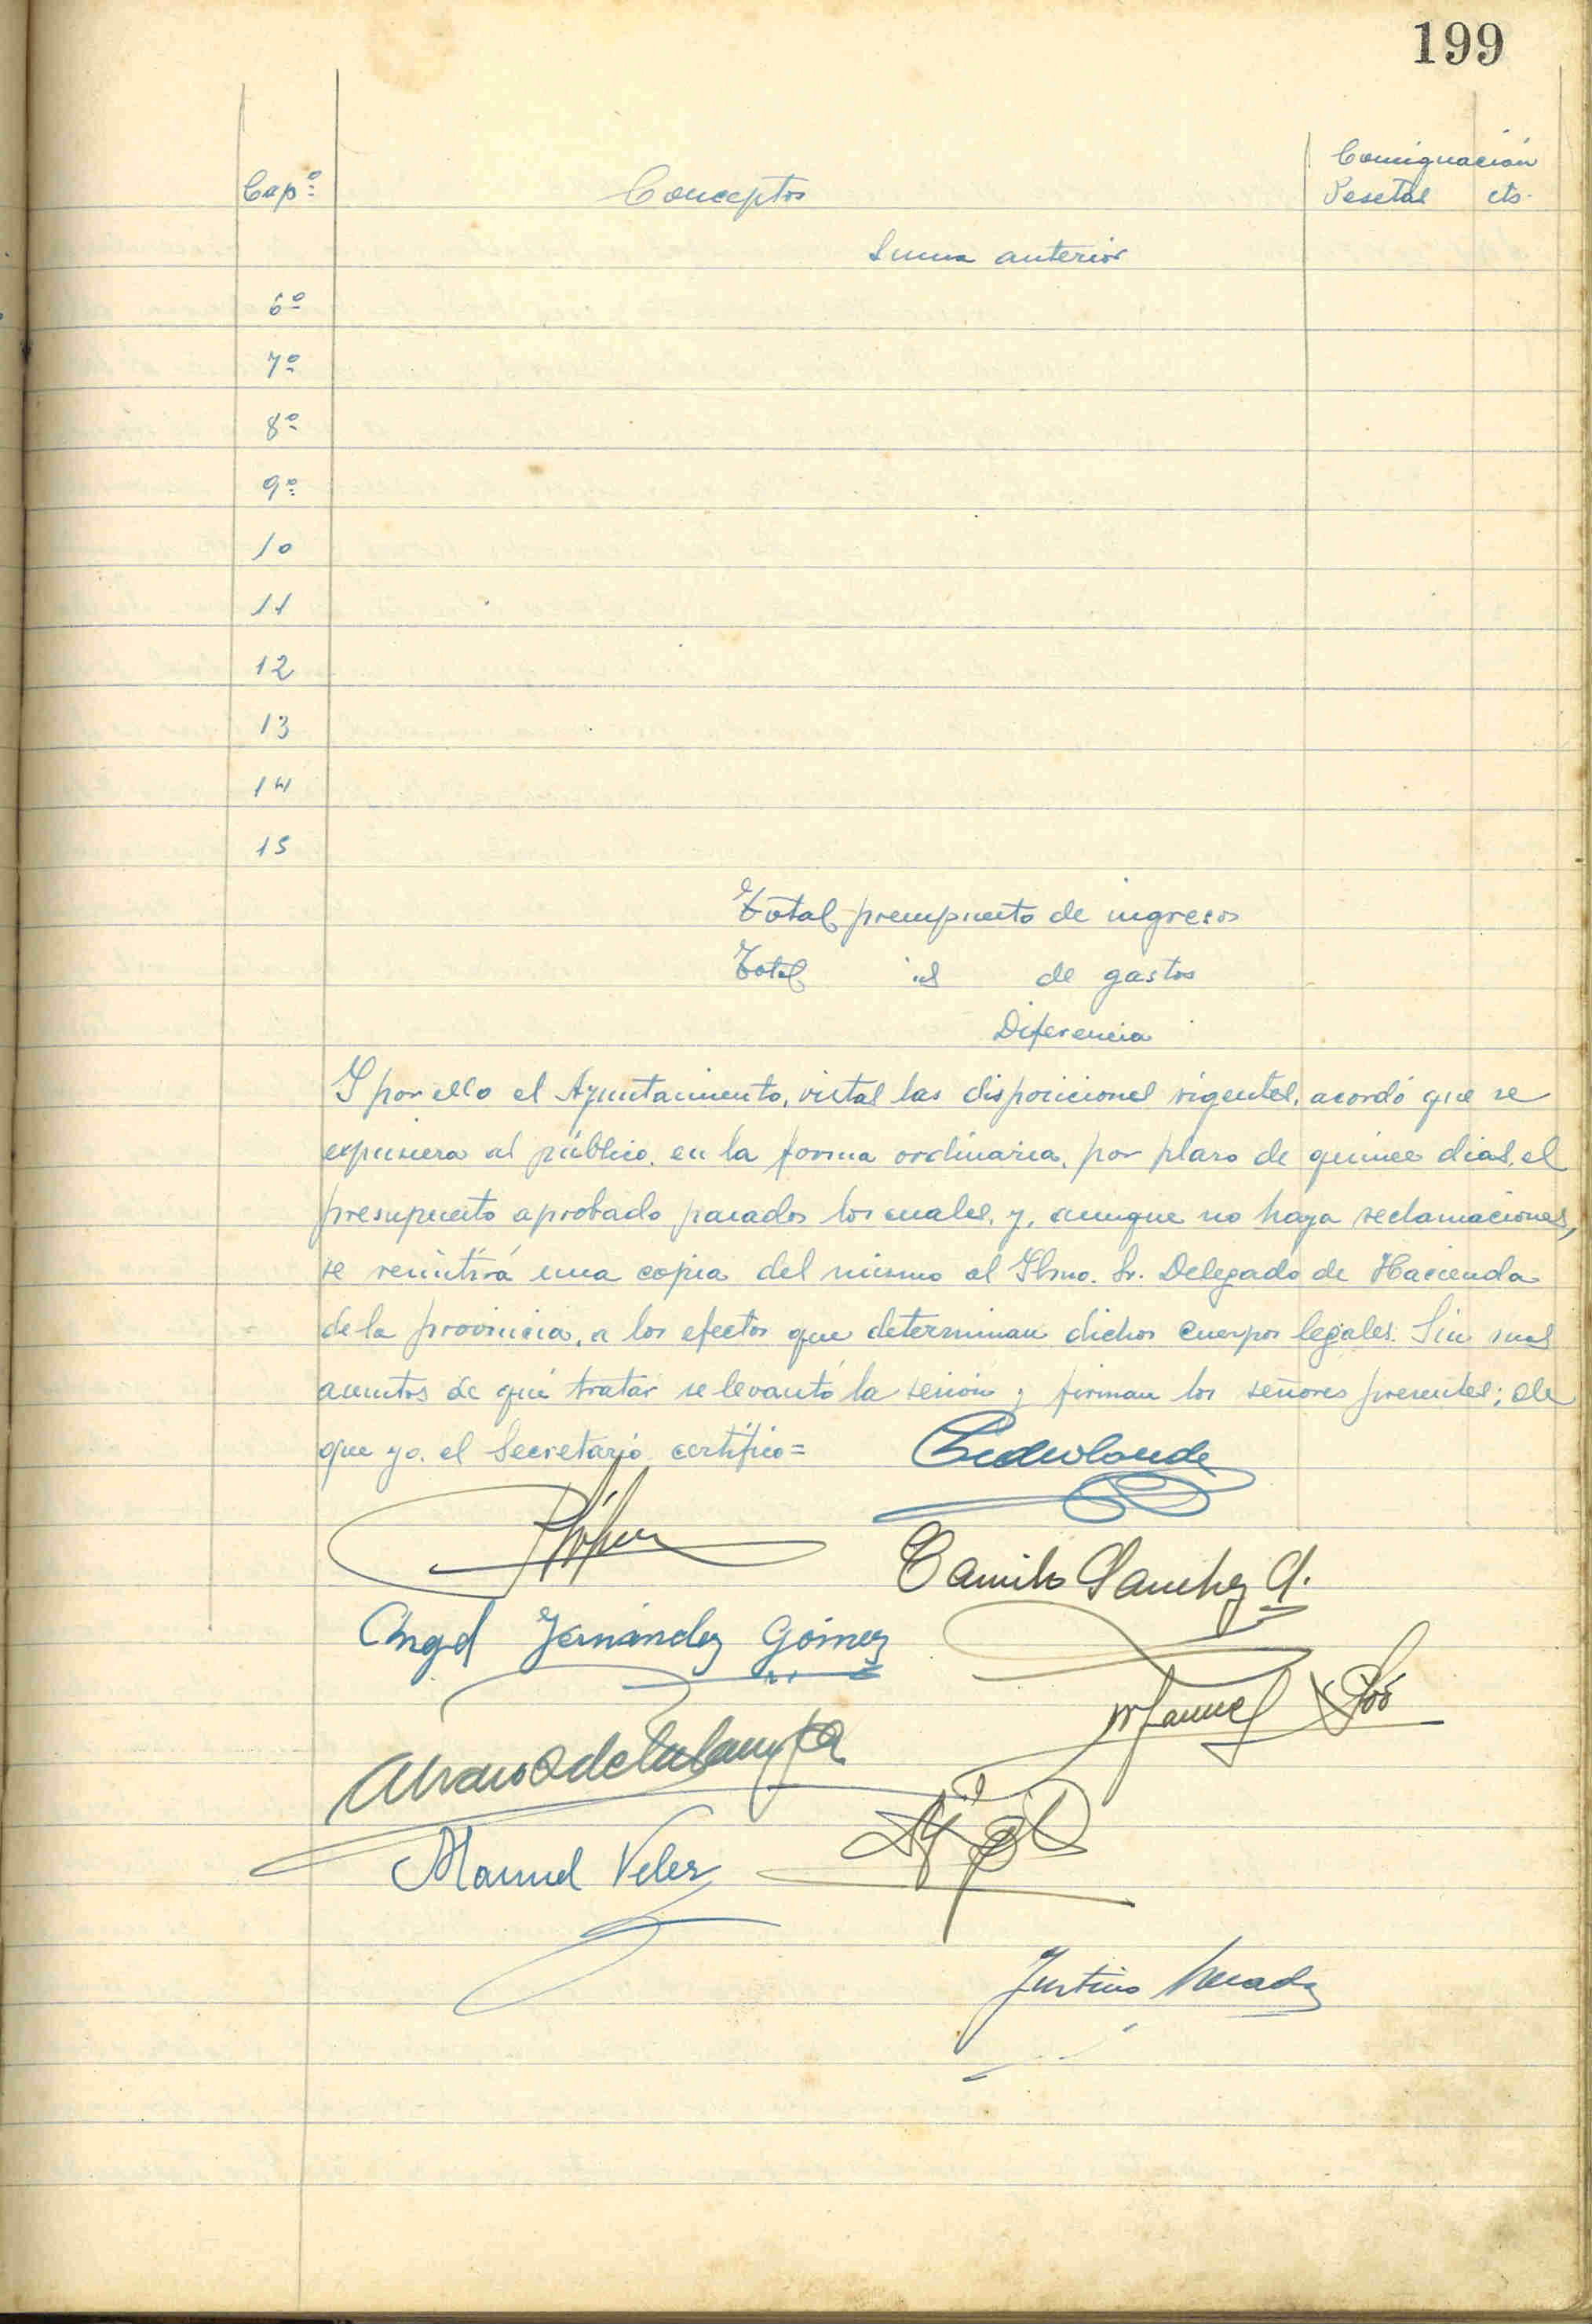 199
Consignación
Capº Conceptos Pesetas cts.
Suma anterior
6º
7º
8º
9º
10
11
12
13
14
15
Total presupuesto de ingresos
Total id de gastos
Diferencia
Y por ello el Ayuntamiento, vistas las disposiciones vigentes, acordó que se
expusiera al público, en la forma ordinaria, por plazo de quince dias, el
presupuesto aprobado pasados los cuales, y, aunque no haya reclamaciones,
se remitirá una copia del mismo al Ilmo. Sr. Delegado de Hacienda
de la provincia, a los efectos que determinan dichos cuerpos legales. Sin mas
asuntos de qué tratar se levantó la sesión y firman los señores presentes; de
que yo, el Secretario certifico=
Camilo Sanchez
Angel Fernández Gómez
Manuel
Manuel Velez
Justino